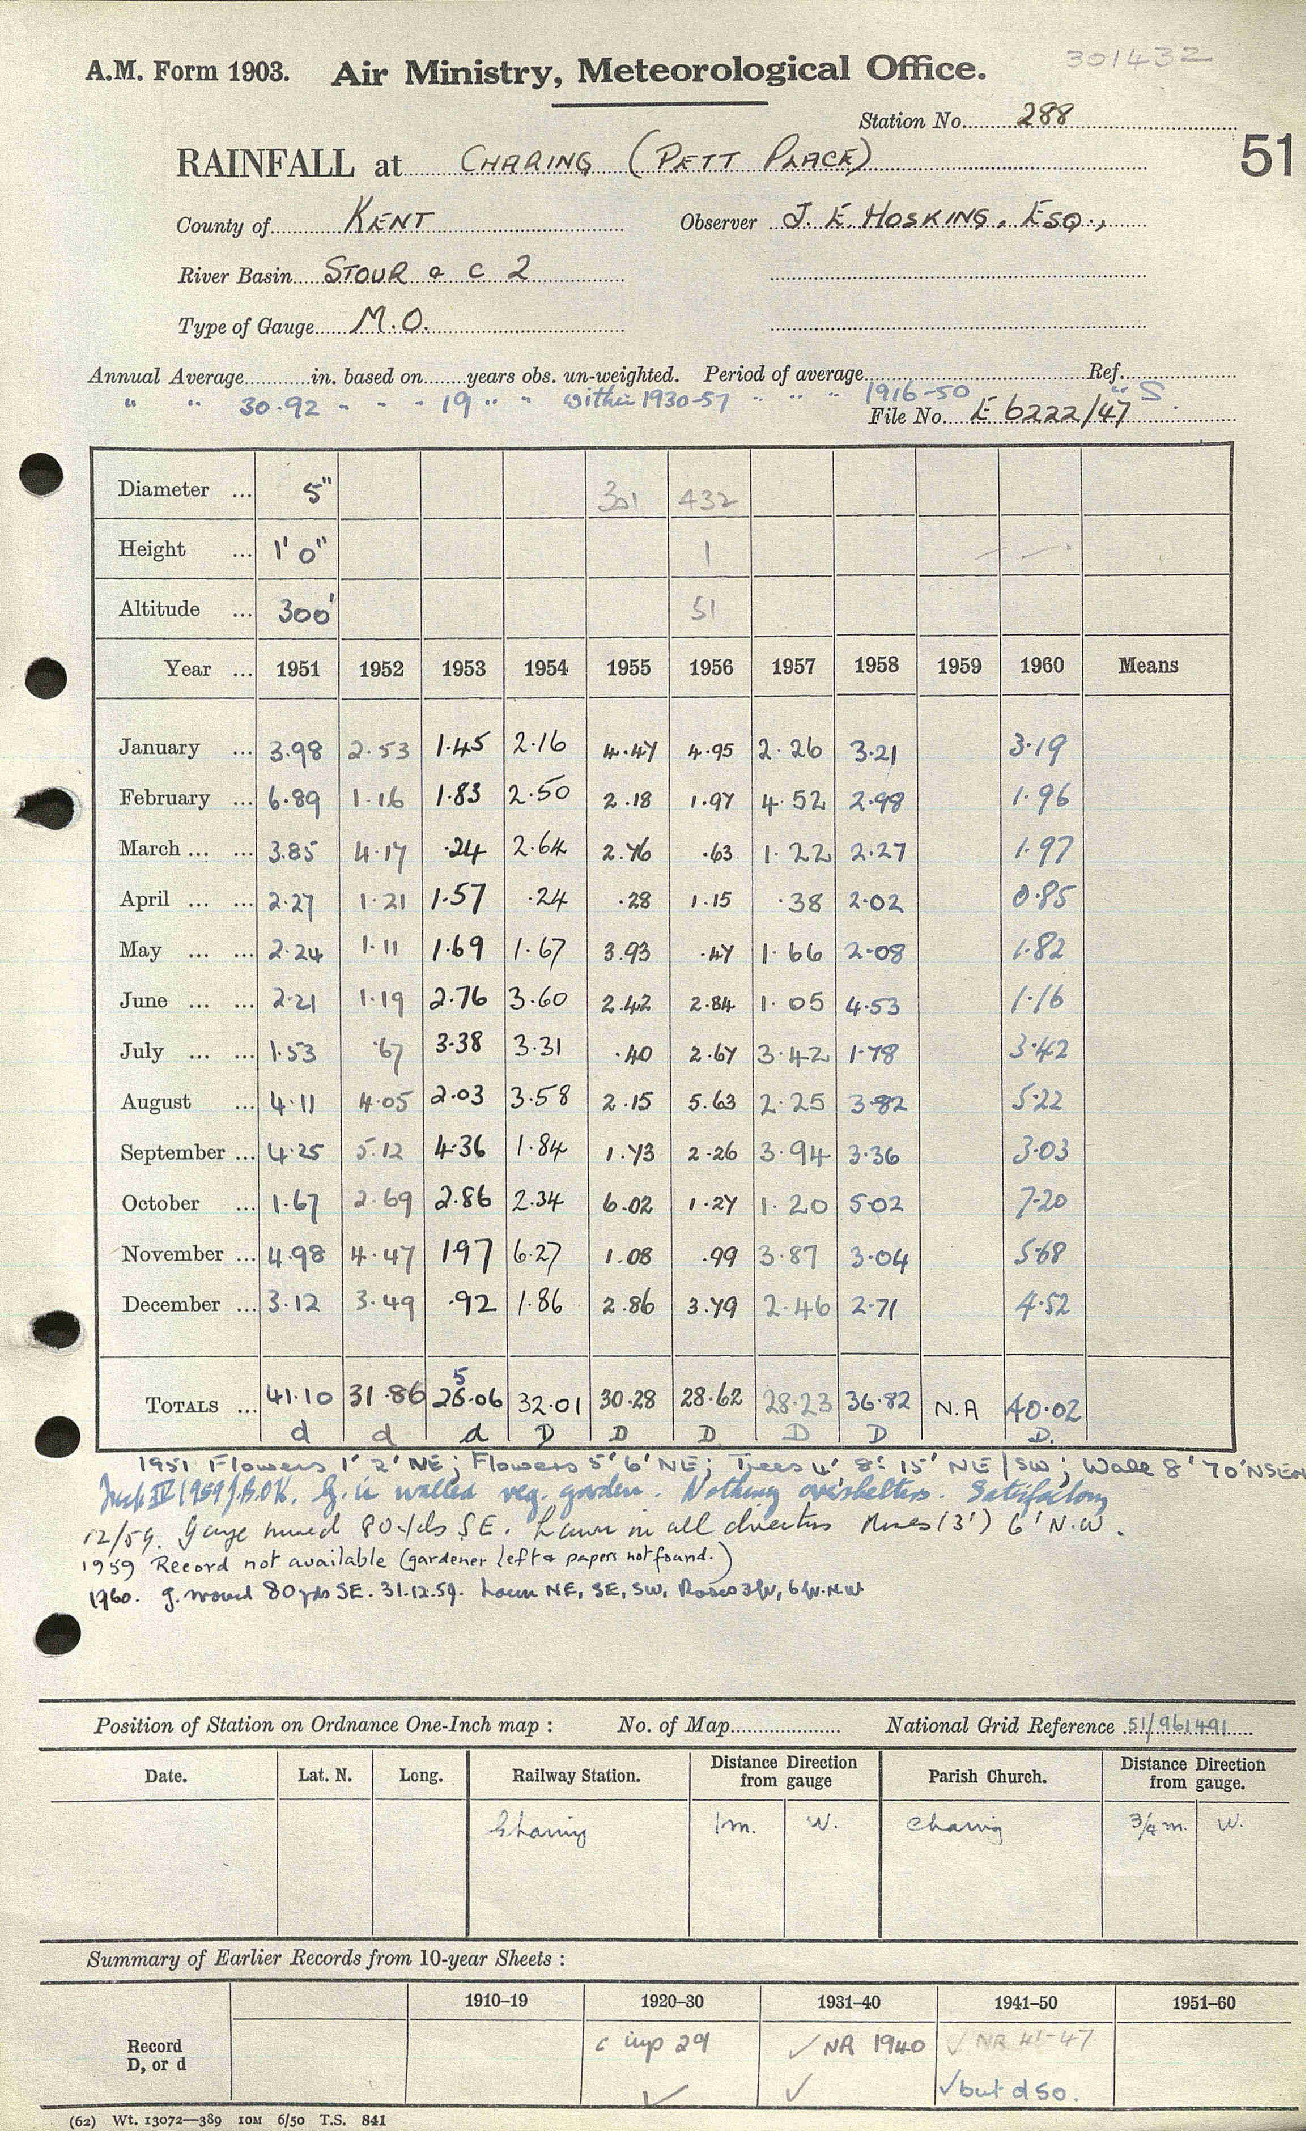 301432
A.M. Form 1903. Air Ministry, Meteorological Office.
Station No. 288
51
RAINFALL at CHARING (PETT PLACE)
County of KENT Observer J. E. HOSKING, ESQ.,
River Basin STOUR & C 2
Type of Gauge M.O.
Annual Average in. based on years obs. un-weighted. Period of average Ref.
" " 30.92 " " " 19 " " within 1930-57 " " " 1916-50 " S
File No. E 6222/47
Diameter ... 5" 301 432
Height ... 1' 0" 1
Altitude ... 300' 51
Year ... 1951 1952 1953 1954 1955 1956 1957 1958 1959 1960 Means
January ... 3.98 2.53 1.45 2.16 4.47 4.95 2.26 3.21 3.19
February ... 6.89 1.16 1.83 2.50 2.18 1.97 4.52 2.98 1.96
March ... ... 3.85 4.17 .24 2.64 2.76 .63 1.22 2.27 1.97
April ... ... 2.27 1.21 1.57 .24 .28 1.15 .38 2.02 0.85
May ... ... 2.24 1.11 1.69 1.67 3.93 .47 1.66 2.08 1.82
June ... ... 2.21 1.19 2.76 3.60 2.42 2.84 1.05 4.53 1.16
July ... ... 1.53 .67 3.38 3.31 .40 2.67 3.42 1.78 3.42
August ... 4.11 4.05 2.03 3.58 2.15 5.63 2.25 3.82 5.22
September ... 4.25 5.12 4.36 1.84 1.73 2.26 3.94 3.36 3.03
October ... 1.67 2.69 2.86 2.34 6.02 1.27 1.20 5.02 7.20
November ... 4.98 4.47 1.97 6.27 1.08 .99 3.87 3.04 5.68
December ... 3.12 3.49 .92 1.86 2.86 3.79 2.46 2.71 4.52
5
TOTALS ... 41.10 31.86 26.06 32.01 30.28 28.62 28.23 36.82 N.A 40.02
d d d D D D D D D.
1951 Flowers 1' 2' NE; Flowers 5' 6' NE; Trees 4' 8' 15' NE/SW; Wall 8' 70' NSEW
IV 1959 G. in walled veg. garden. Nothing overshelters. Satisfactory
12/59. Gauge moved 80 yds SE. Lawn in all directions (3') 6' N.W.
1959 Record not available (gardener left & papers not found.)
1960. g. moved 80 yds SE. 31.12.59. Lawn NE, SE, SW, Roses
Position of Station on Ordnance One-Inch map : No. of Map National Grid Reference 51/961491
Date. Lat. N. Long. Railway Station. Distance Direction from gauge Parish Church. Distance Direction from gauge.
Charing 1m. W. Charing 3/4 m. W.
Summary of Earlier Records from 10-year Sheets :
1910–19 1920–30 1931–40 1941–50 1951–60
Record D, or d
c inp 29 ✓ NR 1940 ✓ NR 41-47
✓ ✓ ✓ but d 50.
(62) Wt. 13072—389 10M 6/50 T.S. 841